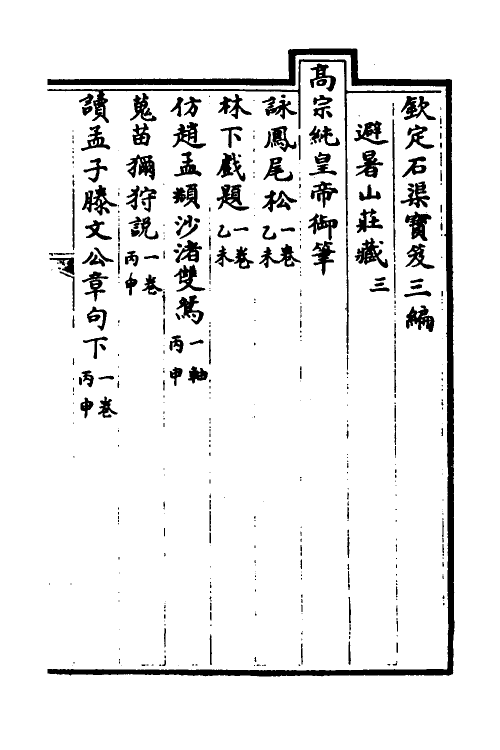 欽定石渠寶笈三編
避暑山莊藏三
高宗純皇帝御筆
詠鳳尾松一卷乙未
林下戲題一卷乙未
仿趙孟頫沙渚雙鴛一軸丙申
蒐苗獮狩說一卷丙申
讀孟子滕文公章句下一卷丙申